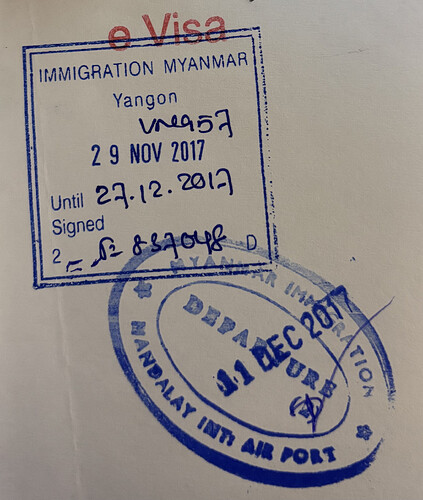 e Visa
IMMIGRATION MYANMAR
Yangon
29 NOV 2017
Until 27.12.2017
Signed
2 837048 D
MYANMAR IMMIGRATION
DEPARTURE
11 DEC 2017
MANDALAY INT! AIR PORT